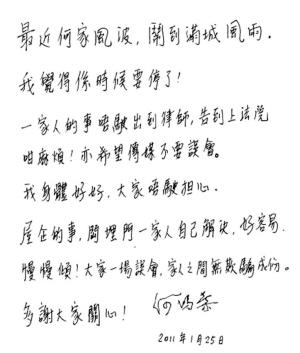 最近何家風波，鬧到滿城風雨．
我覺得係時候要停了！
一家人的事唔駛出到律師，告到上法院
咁麻煩！亦希望傳媒不要誤會。
我身體好好，大家唔駛担心．
屋企的事，関埋門一家人自己解決，好容易．
慢慢傾！大家一場誤會，家人之間無欺騙成份。
多謝大家關心！
何鴻燊
2011年1月25日